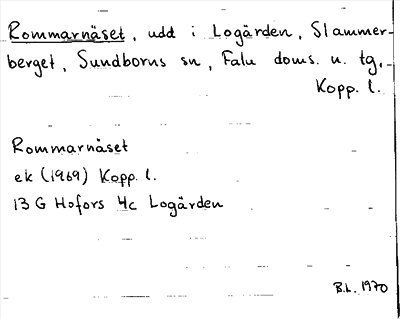 Rommarnäset, udd i Logärden, Slammer-
berget, Sundborns sn, Falu doms. n. tg,
Kopp. l.
Rommarnäset
ek (1969) Kopp. l.
13 G Hofors 4c Logärden
B.L. 1970